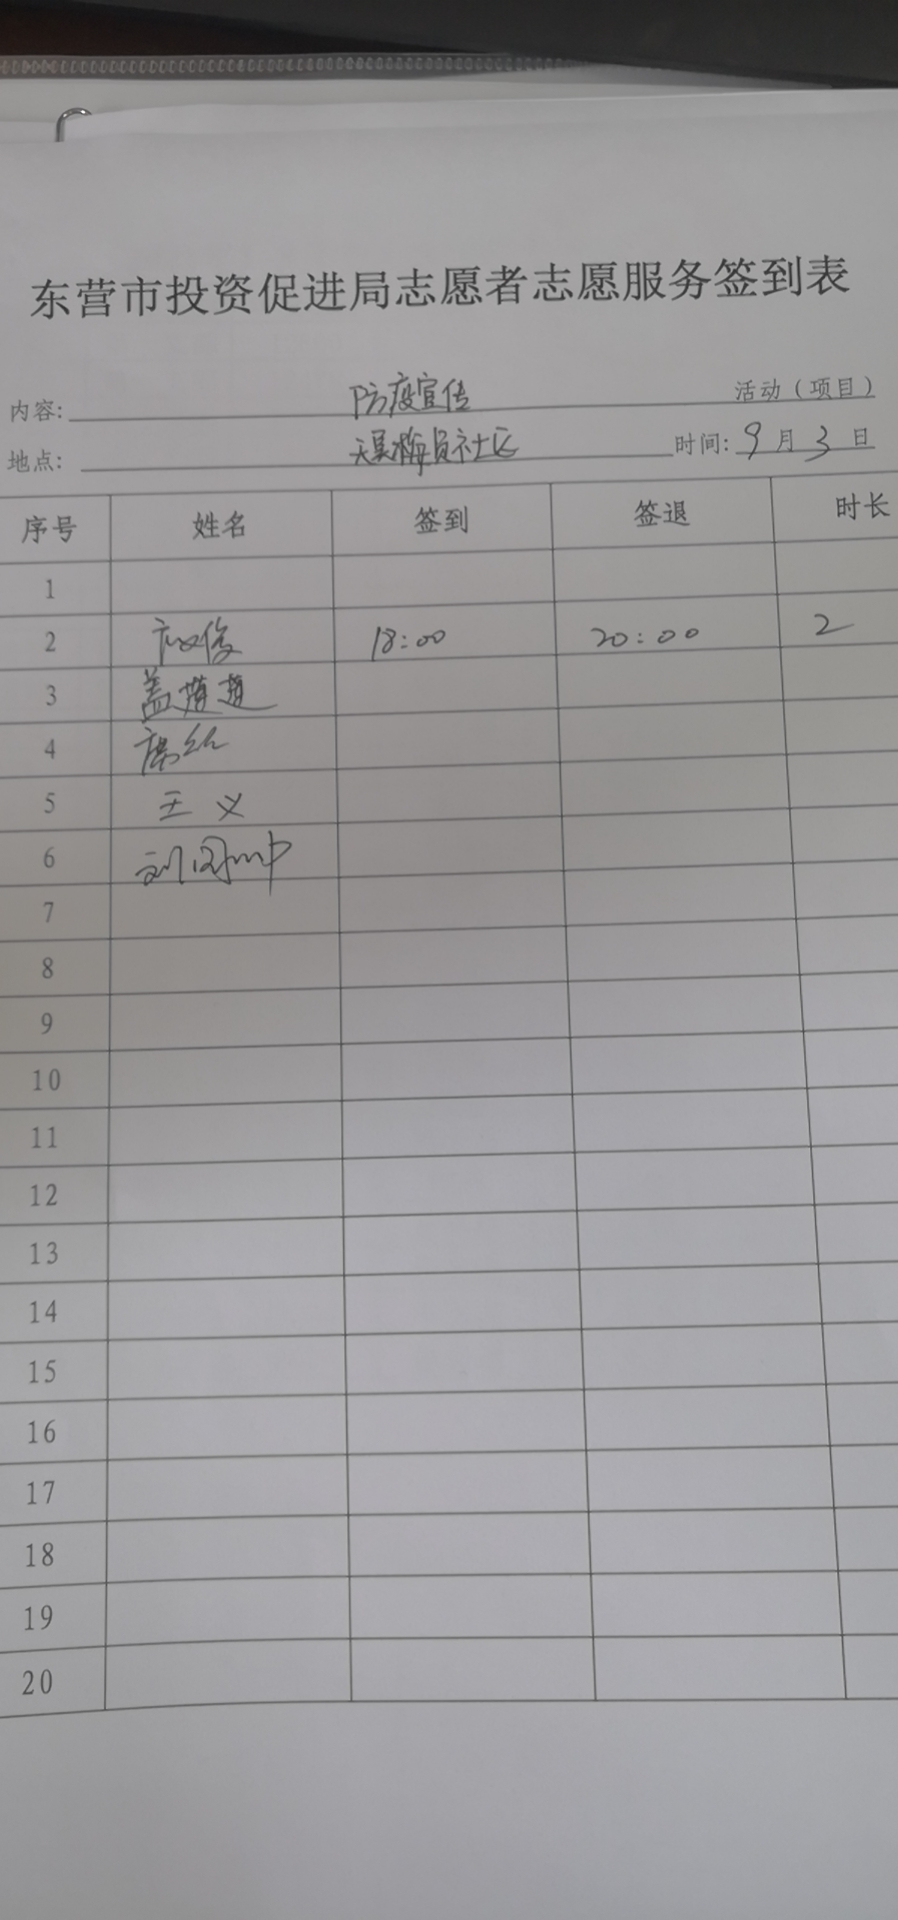 东营市投资促进局志愿者志愿服务签到表
内容: 防疫宣传 活动（项目）
地点: 社区 时间: 9月3日
序号 姓名 签到 签退 时长
1
2 18:00 20:00 2
3 盖
4
5 王义
6 刘
7
8
9
10
11
12
13
14
15
16
17
18
19
20